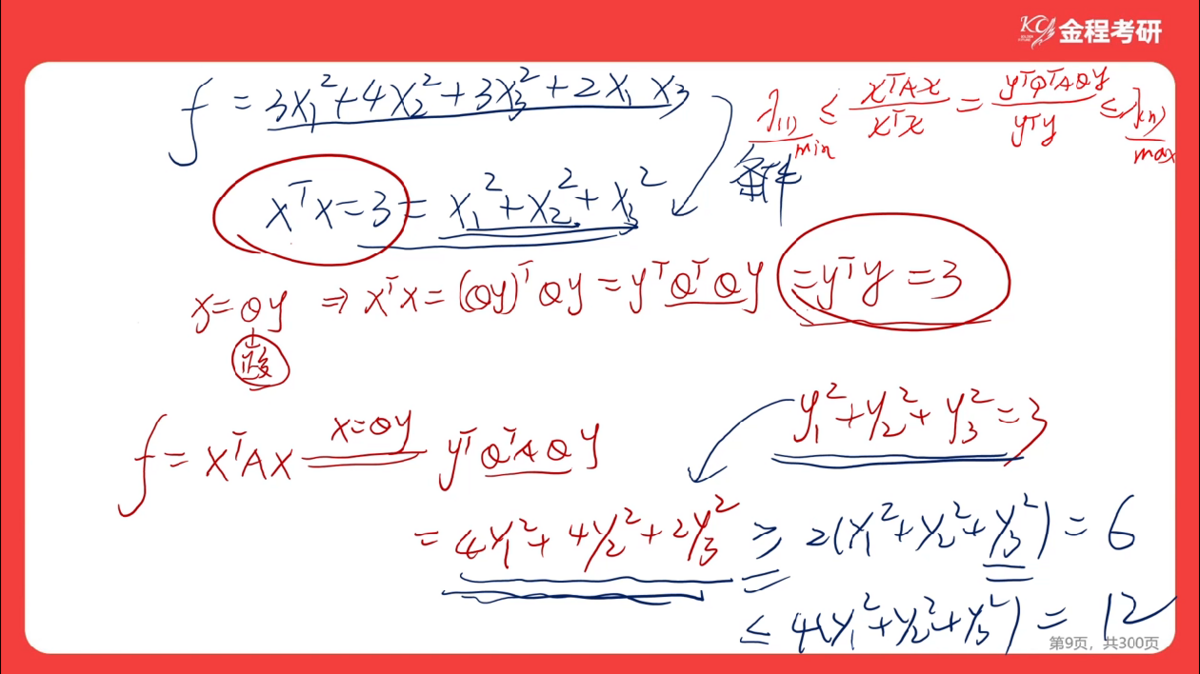 KC 金程考研
f = 3x₁² + 4x₂² + 3x₃² + 2x₁ x₃
λ(1) ≤ xᵀAx / xᵀx = yᵀQᵀAQy / yᵀy ≤ λ(n)
min
max
xᵀx = 3 = x₁² + x₂² + x₃²
条件
x = Qy ⇒ xᵀx = (Qy)ᵀQy = yᵀQᵀQy = yᵀy = 3
正交
y₁² + y₂² + y₃² = 3
f = xᵀAx x=Qy yᵀQᵀAQy
= 4y₁² + 4y₂² + 2y₃² ≥ 2(y₁² + y₂² + y₃²) = 6
≤ 4(y₁² + y₂² + y₃²) = 12
第9页，共300页